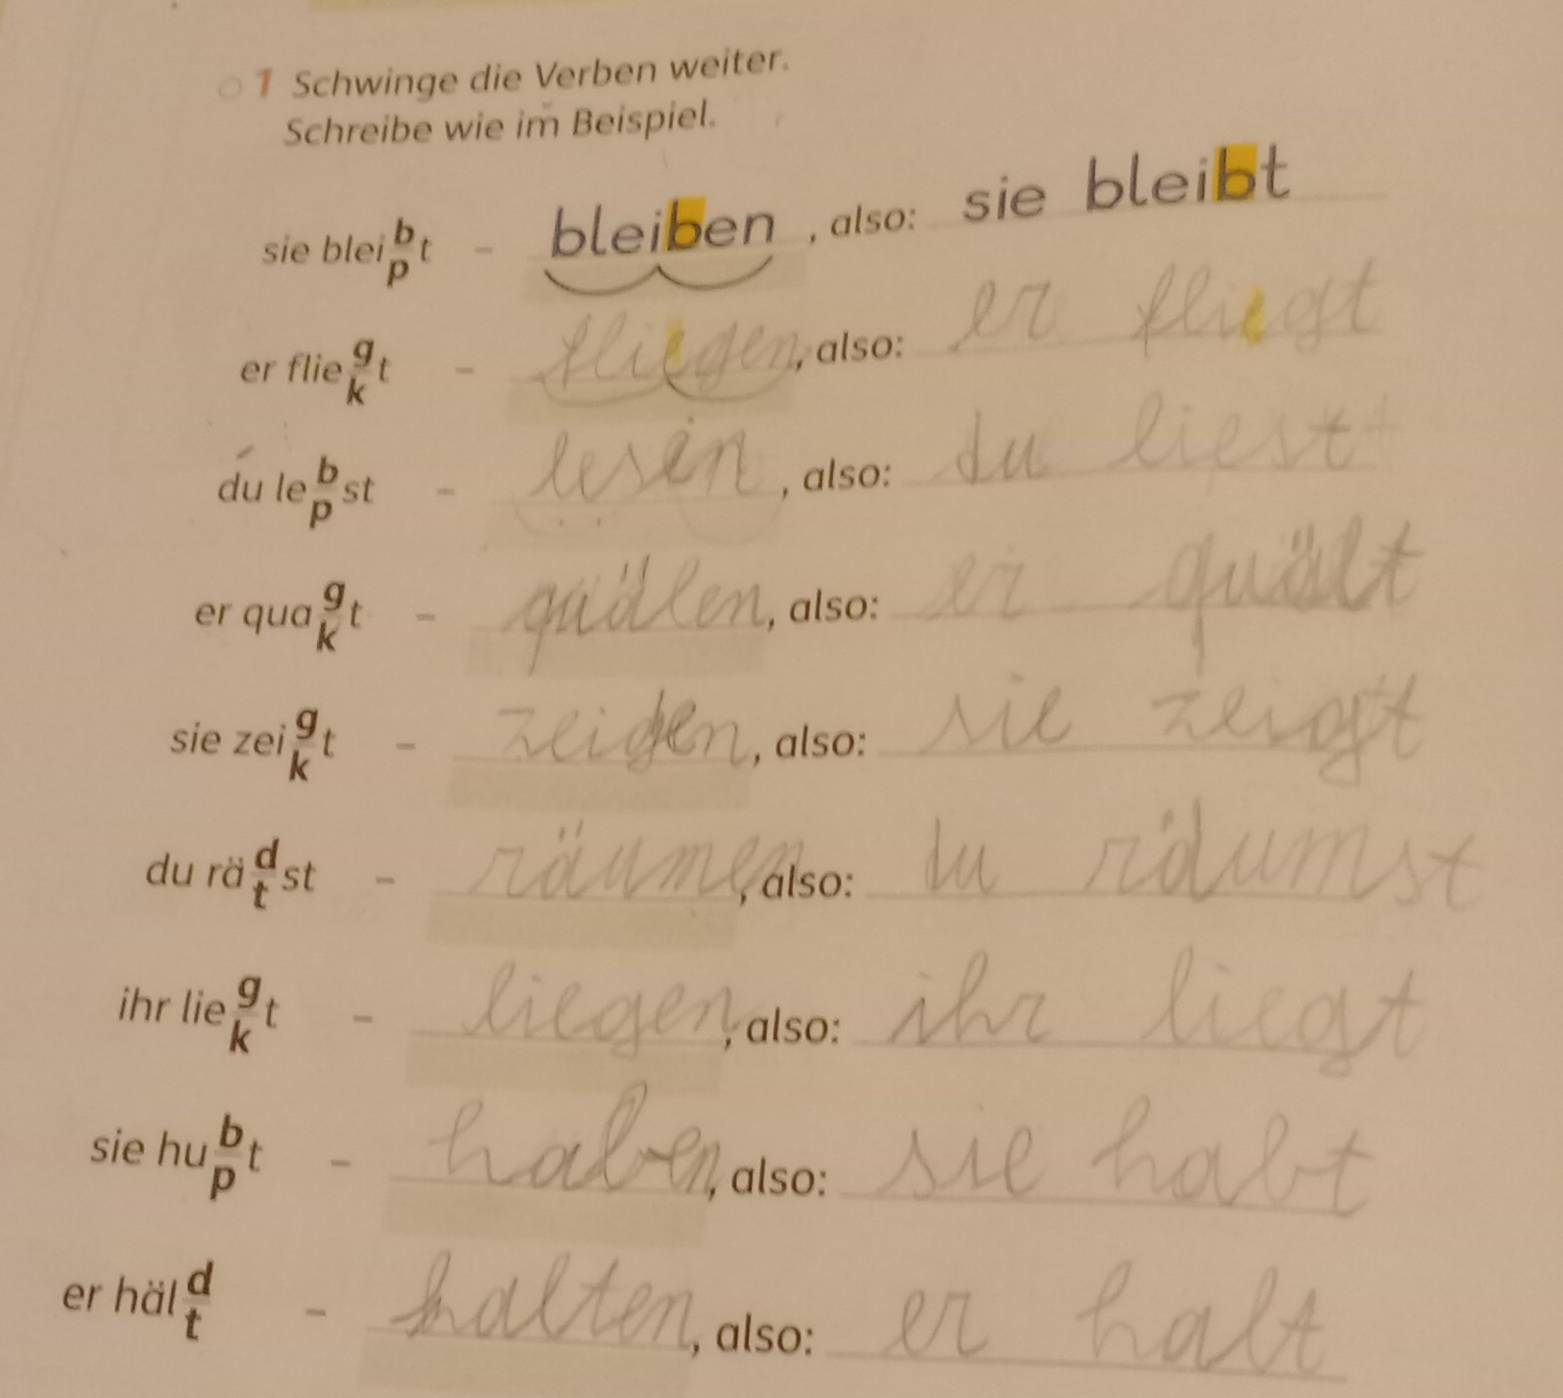 1 Schwinge die Verben weiter.
Schreibe wie im Beispiel.
sie blei b/p t - bleiben, also: sie bleibt
er flie g/k t - fliegen, also: er fliegt
du le b/p st - lesen, also: du liest
er qua g/k t - quälen, also: er quält
sie zei g/k t - zeigen, also: sie zeigt
du rä d/t st - räumen, also: du räumst
ihr lie g/k t - liegen, also: ihr liegt
sie hu b/p t - haben, also: sie habt
er häl d/t - halten, also: er halt